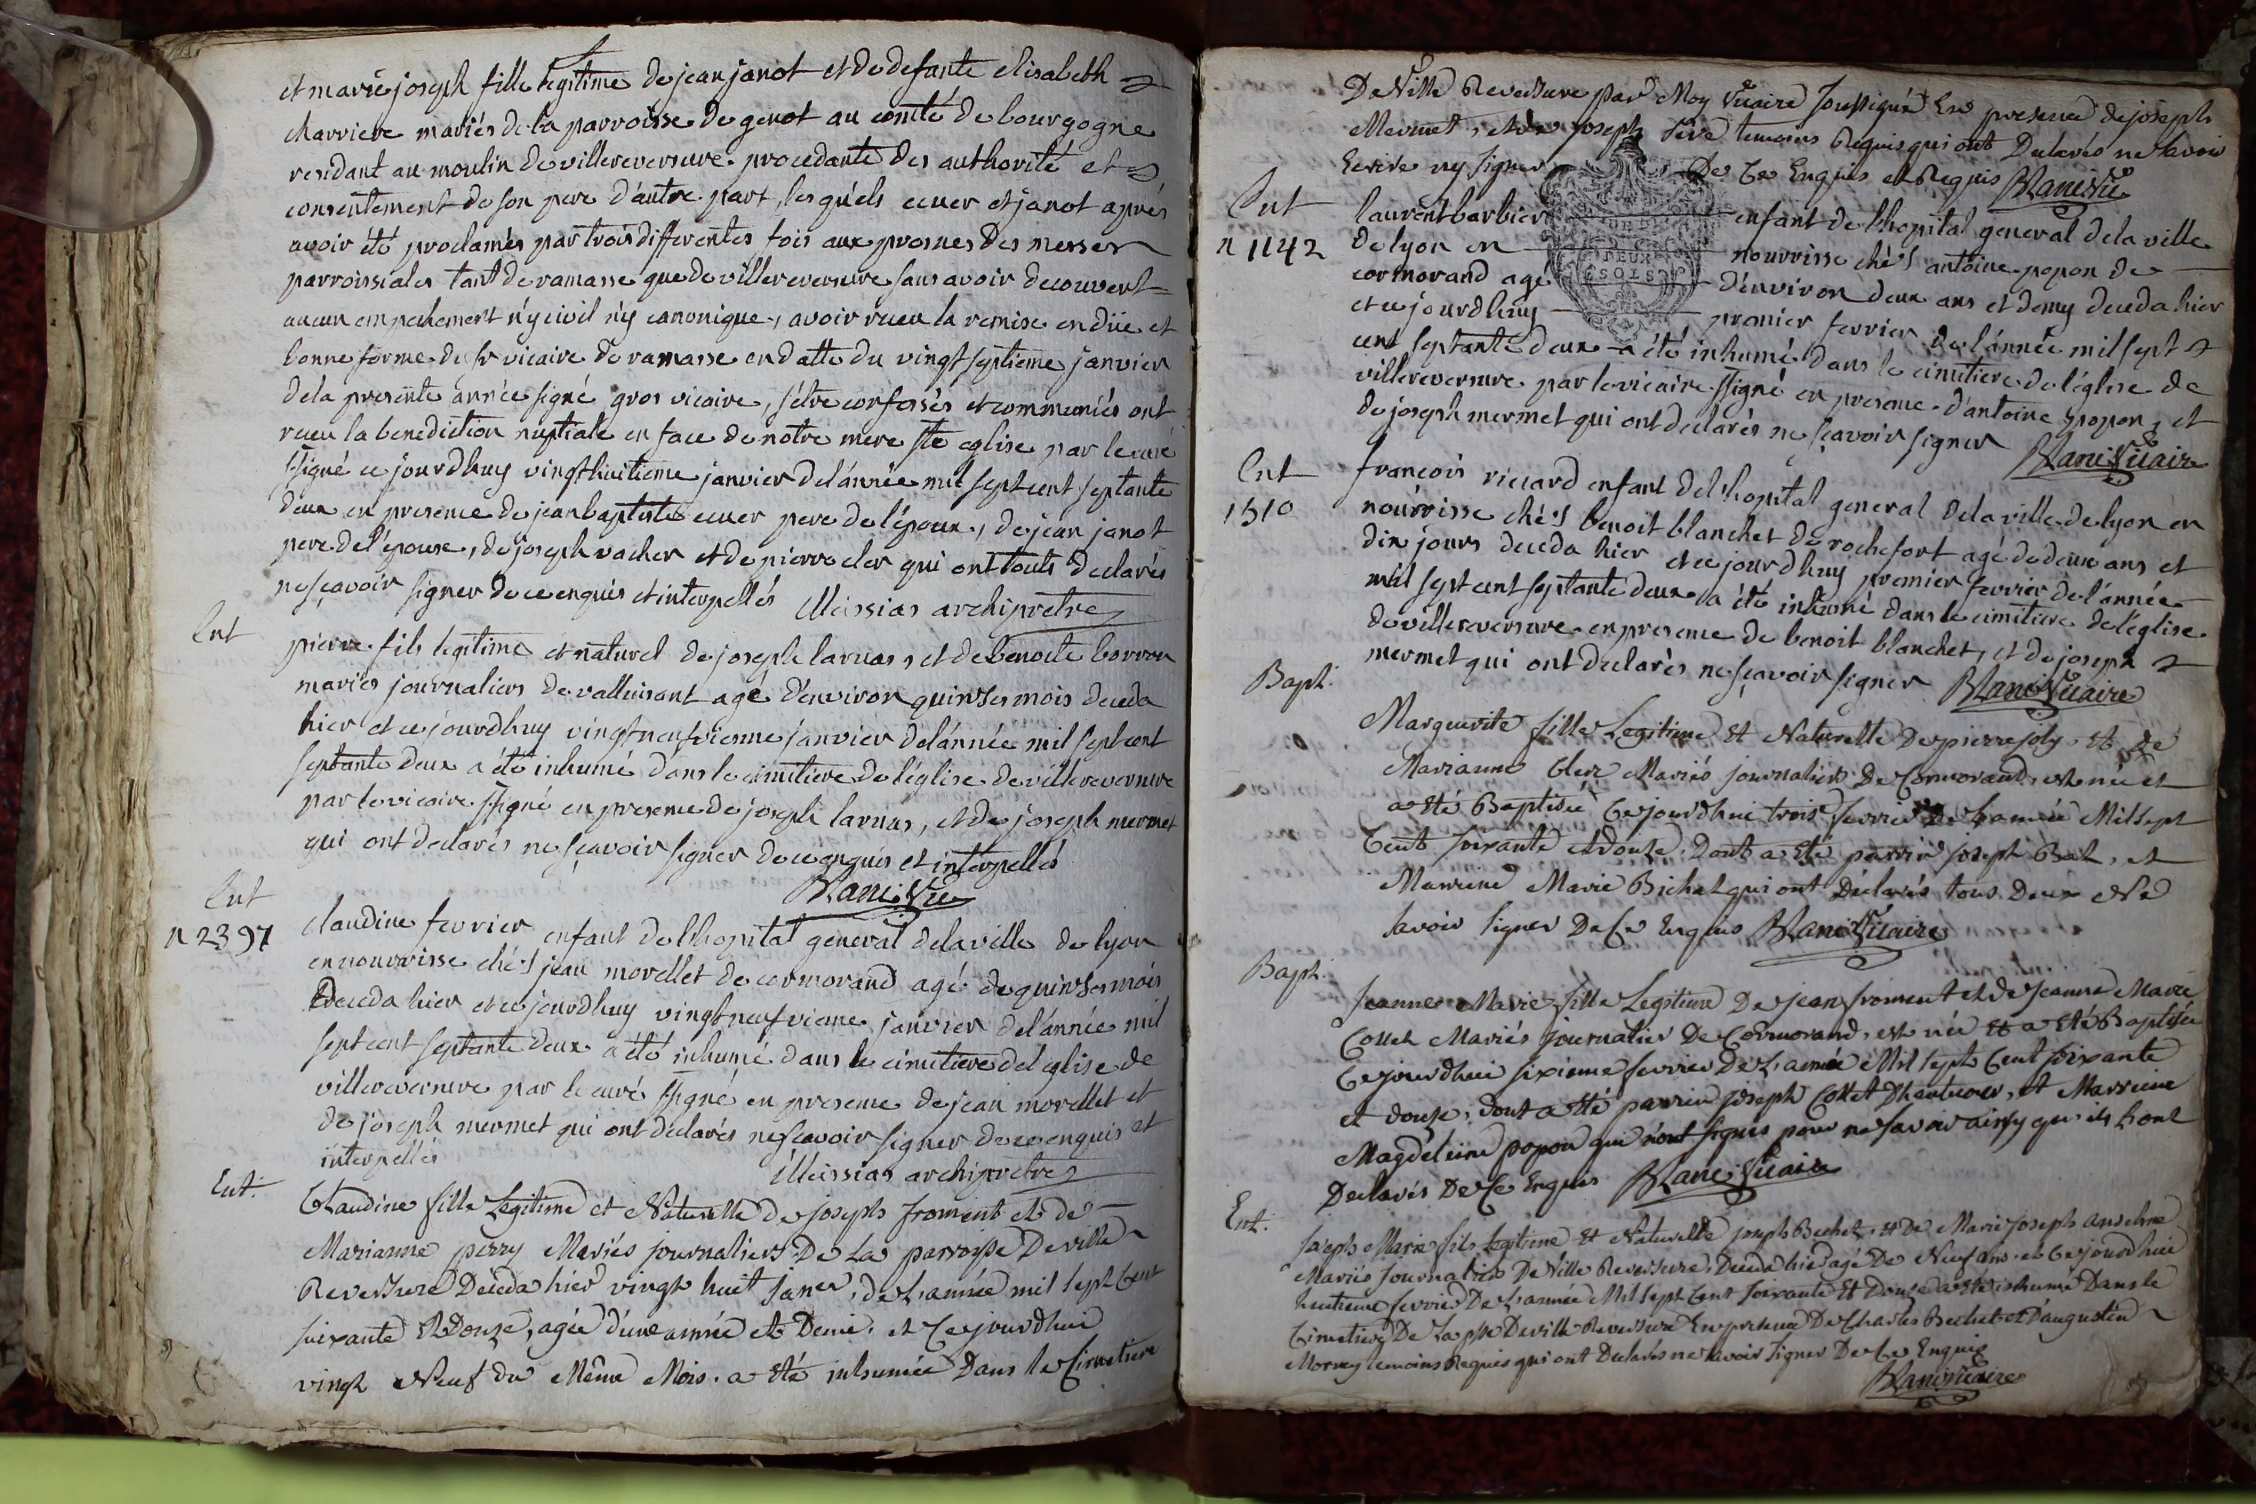 et marie joseph fille legitime de jean janot et de defante elisabeth
charriere mariés de la parroisse de genot au comté de bourgogne
residant au moulin de villereversure procedante des authorité et
consentement de son pere d'autre part, lesquels ecuer et janot aprés
avoir été proclamés par trois differentes fois aux prosnes des messes
parroissiales tant de ramasse que de villereversure sans avoir decouvert
aucun empechement n'y civil n'y canonique, avoir receu la remise en düe et
bonne forme du sr vicaire de ramasse en datte du vingt septieme janvier
de la presente année signé gros vicaire, s'étre confessés et communiés ont
receu la benediction nuptiale en face de notre mere ste eglise par le curé
ssigné ce jourdhuy vingt huitieme janvier de l'année mil sept cent septante
deux en presence de jean baptiste ecuer pere de l'époux, de jean janot
pere de l'épouse, de joseph vacher et de pierre cler qui ont touts declarés
ne sçavoir signer de ce enquis et interpellés Meissias archiprétre
Ent
pierre fils legitime et naturel de joseph larvas, et de benoite borron
mariés journaliers de valluisant agé d'environ quinses mois deceda
hier et ce jourdhuy vingt neufvieme janvier de l'année mil sept cent
septante deux a été inhumé dans le cimitiere de l'église de villereversure
par le vicaire ssigné en presence de joseph larvas, et de joseph mermet
qui ont declarés ne sçavoir signer de ce enquis et interpellés
Blanc Vic
Ent
n 2397
claudine fevrier enfant de l'hopital general de la ville de lyon
en nourrisse chés jean morellet de cormorand agé de quinses mois
deceda hier et ce jourdhuy vingt neufvieme janvier de l'année mil
sept cent septante deux a été inhumé dans le cimitiere de l'église de
villereversure par le curé ssigné en presence de jean morellet et
de joseph mermet qui ont declarés ne sçavoir signer de ce enquis et
interpellés Meissias archiprétre
Ent.
Claudine fille Legitime et Naturelle de joseph froment et de
Marianne perry Mariés journaliers De La parroisse De ville
Reversure Déceda hier vingt huit janer, de L'année mil sept Cent
soixante Et Douze, agée d'une année et Demie. et Ce jourdhui
vingt Neuf du Même Mois. a été inhumée Dans le Cimetiere
De Ville Reversure par Moy Vicaire Soussigné En presence de joseph
Mermet, et de joseph temoins Requis qui ont Declarés ne savoir
Ecrire ny signer De Ce Enquis et Requis Blanc Vic
DEUX
SOLS
Ent
n 1142
laurent barbier enfant de l'hopital general de la ville
de lyon en nourrisse chés antoine popon de
cormorand agé d'environ deux ans et demy deceda hier
et ce jourdhuy premier fevrier de l'année mil sept
cent septante deux a été inhumé dans le cimitiere de l'église de
villereversure par le vicaire ssigné en presence d'antoine popon, et
de joseph mermet qui ont declarés ne sçavoir signer Blanc Vicaire
Ent
1510
francois riccard enfant de l'hopital general de la ville de lyon en
nourrisse chés benoit blanchet de rochefort agé de deux ans et
dix jours deceda hier et ce jourdhuy premier fevrier de l'année
mil sept cent septante deux a été inhumé dans le cimitiere de l'église
de villereversure en presence de benoit blanchet, et de joseph
mermet qui ont declarés ne sçavoir signer Blanc Vicaire
Bapt.
Marguerite fille Legitime Et Naturelle De pierre joly, et de
Marianne Cler Mariés journaliers De Cormorand, est née et
a été Baptisée Ce jourdhui trois fevrier De L'année Mil Sept
Cent soixante et Douze. Dont a été parrin joseph Bal, et
Marreine Marie Bichat qui ont Déclarés tous Deux Ne
savoir signer De Ce Enquis Blanc Vicaire
Bapt.
Jeanne Marie fille Legitime De jean froment et de Jeanne Marie
Collet Mariés journalier De Cormorand, est née et a été Baptisée
Ce jourdhui sixieme fevrier De L'année Mil Sept Cent soixante
et douze, dont a été parrin joseph Collet Dhautecour, et Marreine
Magdeleine popon qui n'ont signés pour ne savoir ainsy qu'ils l'ont
Declarés De Ce Enquis Blanc Vicaire
Ent.
joseph Marie fils Legitime Et Naturelle joseph Bechet, et De Marie joseph anselme
Mariés Journaliers De Ville Reversure, Deceda hier agé De Neuf ans et Ce jourdhui
huitieme fevrier De L'année Mil Sept Cent soixante Et Douze a été inhumé Dans le
Cimetiere De La psse De ville Reversure En presence De Charles Bechet et D'augustin
Morney temoins Requis qui ont Declarés ne savoir signer De Ce Enquis
Blanc Vicaire